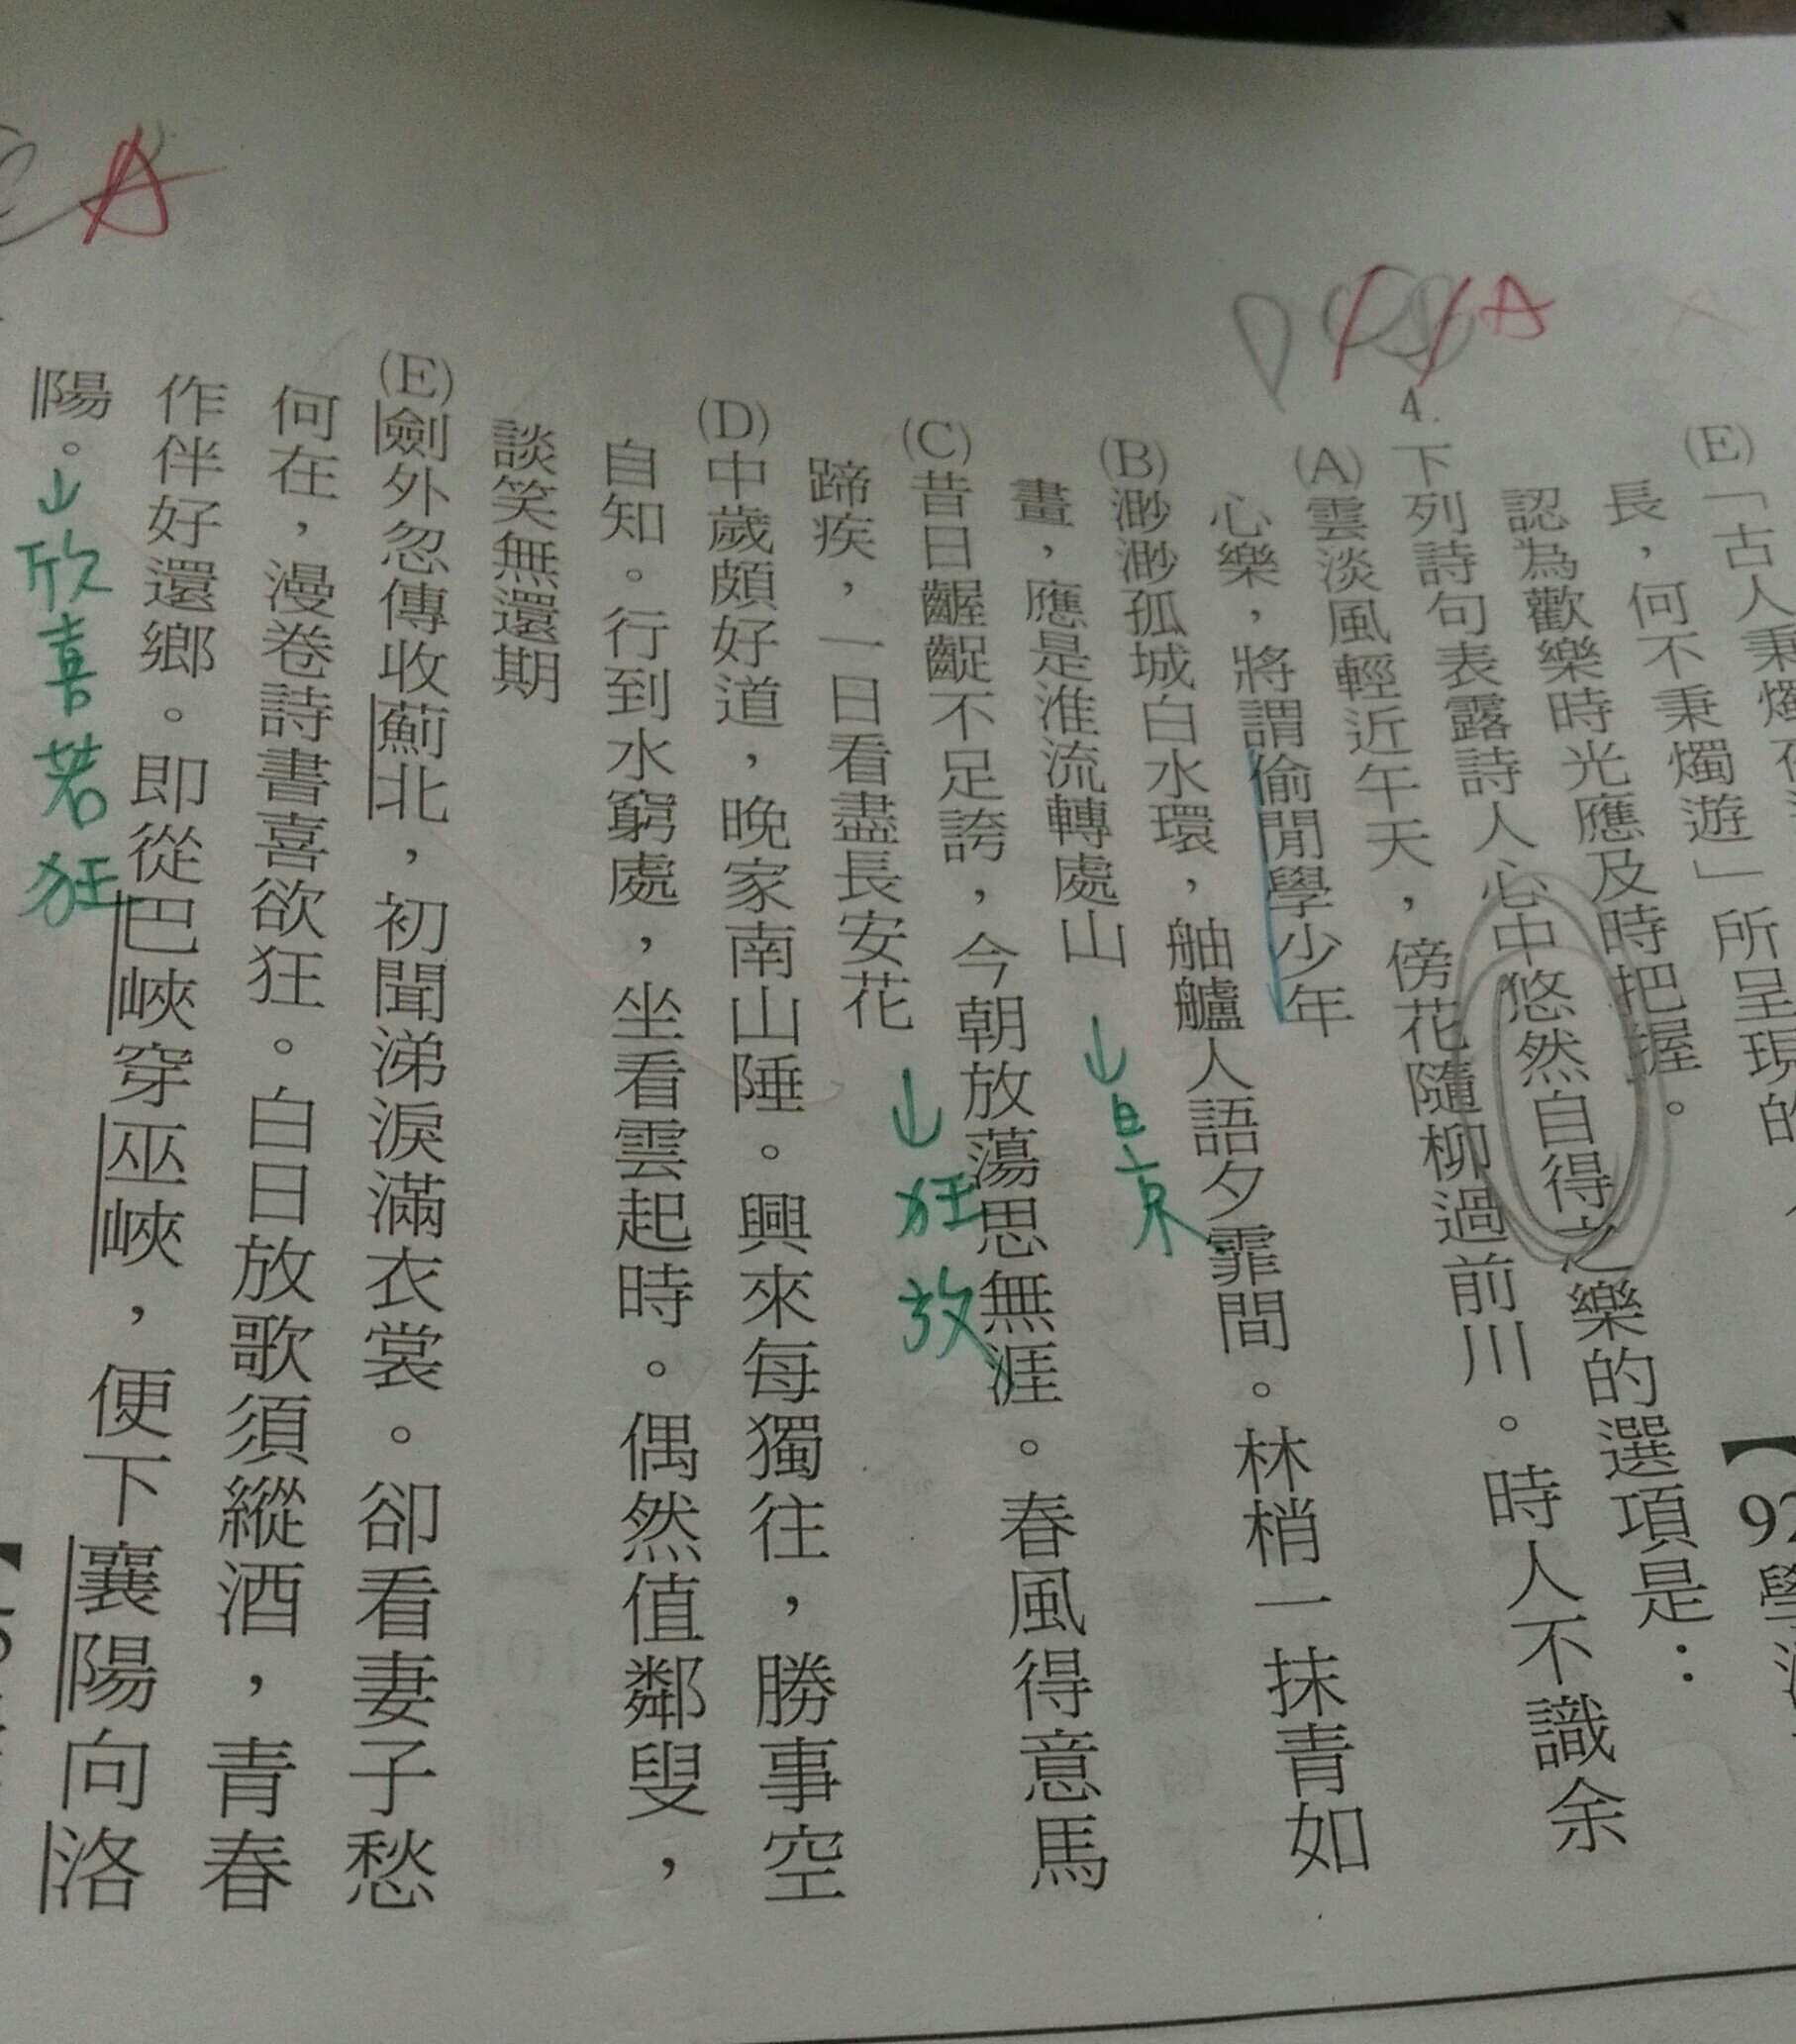 (E)「古人秉燭夜
所呈現的
長，何不秉燭遊」
認為歡樂時光應及時把握。
【92學
A
4.
下列詩句表露詩人心中悠然自得之樂的選項是：
(A)雲淡風輕近午天，傍花隨柳過前川。時人不識余
心樂，將謂偷閒學少年
(B)渺渺孤城白水環，舳艫人語夕霏間。林梢一抹青如
畫，應是淮流轉處山
↓景
(C)昔日齷齪不足誇，今朝放蕩思無涯。春風得意馬
蹄疾，一日看盡長安花
↓狂放
(D)中歲頗好道，晚家南山陲。興來每獨往，勝事空
自知。行到水窮處，坐看雲起時。偶然值鄰叟，
談笑無還期
(E)劍外忽傳收薊北，初聞涕淚滿衣裳。卻看妻子愁
何在，漫卷詩書喜欲狂。白日放歌須縱酒，青春
作伴好還鄉。即從巴峽穿巫峽，便下襄陽向洛
陽。
↓欣喜若狂
A